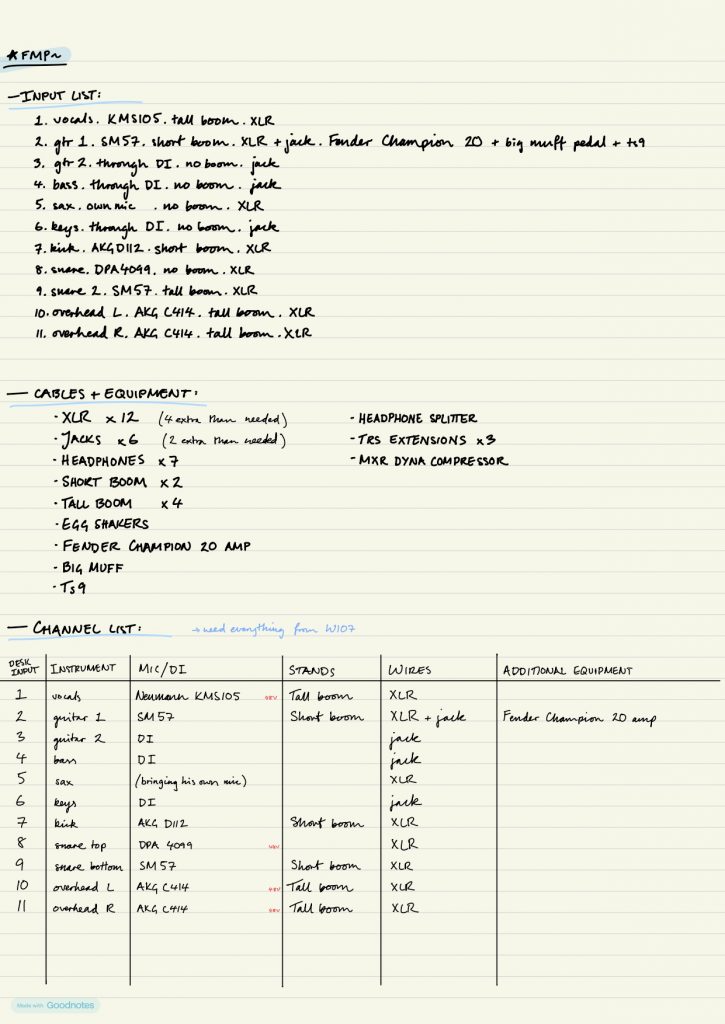 ★ FMP~
— INPUT LIST:
1. vocals. KMS105. tall boom. XLR
2. gtr 1. SM57. short boom. XLR + jack. Fender Champion 20 + big muff pedal + ts9
3. gtr 2. through DI. no boom. jack
4. bass. through DI. no boom. jack
5. sax. own mic . no boom. XLR
6. keys. through DI. no boom. jack
7. kick. AKG D112. short boom. XLR
8. snare. DPA4099. no boom. XLR
9. snare 2. SM57. tall boom. XLR
10. overhead L. AKG C414. tall boom. XLR
11. overhead R. AKG C414. tall boom. XLR
— CABLES + EQUIPMENT:
· XLR x 12 (4 extra than needed)
· JACKS x 6 (2 extra than needed)
· HEADPHONES x 7
· SHORT BOOM x 2
· TALL BOOM x 4
· EGG SHAKERS
· FENDER CHAMPION 20 AMP
· BIG MUFF
· Ts9
· HEADPHONE SPLITTER
· TRS EXTENSIONS x3
· MXR DYNA COMPRESSOR
— CHANNEL LIST: → need everything from W107
DESK INPUT INSTRUMENT MIC/DI STANDS WIRES ADDITIONAL EQUIPMENT
1 vocals Neumann KMS105 48V Tall boom XLR
2 guitar 1 SM57 Short boom XLR + jack Fender Champion 20 amp
3 guitar 2 DI jack
4 bass DI jack
5 sax (bringing his own mic) XLR
6 keys DI jack
7 kick AKG D112 Short boom XLR
8 snare top DPA 4099 48V XLR
9 snare bottom SM57 Short boom XLR
10 overhead L AKG C414 48V Tall boom XLR
11 overhead R AKG C414 48V Tall boom XLR
Made with Goodnotes